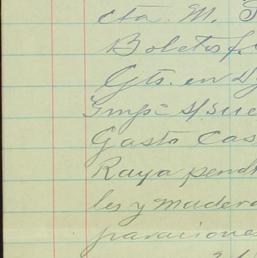 cta. M.
Boletos f.
Gts. en
Imp. s/sue
Gasto Cas
Raya pend
les y madera
paracione